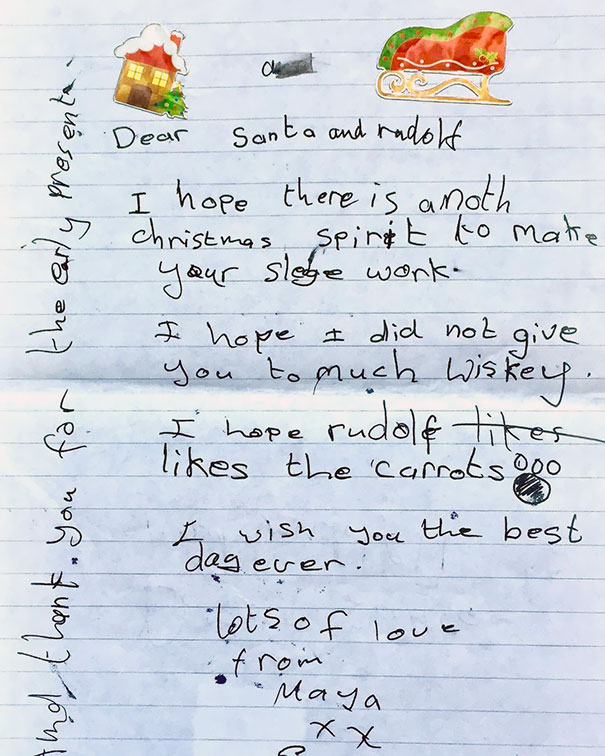 Dear Santa and rudolf
I hope there is anoth
christmas spirit to make
your slege work.
I hope I did not give
you to much wiskey.
I hope rudolf likes
likes the carrots
I wish you the best
day ever.
lots of love
from
Maya
x x
And thank you for the early present.